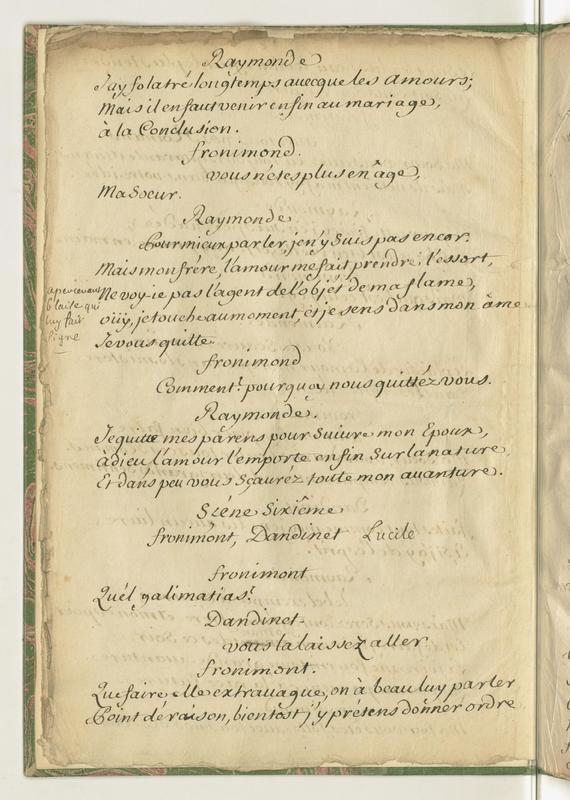 Raymonde
J'ay folatré longtemps auecque les amours;
Mais il en faut venir enfin au mariage,
à la Conclusion.
fronimond.
vous n'étes plus en âge,
Ma Soeur.
Raymonde
Pour mieux parler, je n'y suis pas encor.
Mais mon frére, l'amour me fait prendre l'essort,
Ne voy-ie pas l'agent de l'objét de ma flame,
apercevant
laile qui
luy fait
signe
oüy, je touche au moment, et je sens dans mon âme
Je vous quitte
fronimond
Comment! pourquoy nous quittéz vous.
Raymonde.
Je quitte mes parens pour Suiure mon Epoux,
àdieu l'amour l'emporte enfin Sur la nature,
Et dans peu vous Sçauréz toute mon auanture.
Scéne Sixiême
fronimont, Dandinet Lucile
fronimont
Quél galimatias!
Dandinet
vous la laissez aller
fronimont.
Que faire elle extrauague, on à beau luy parler
Point de raison, bientost j'y prétens donner ordre